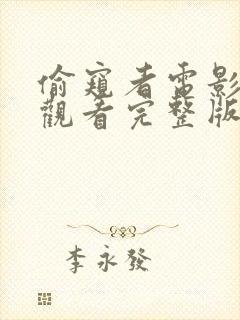 偷窺者電影
觀看完整版
李永發